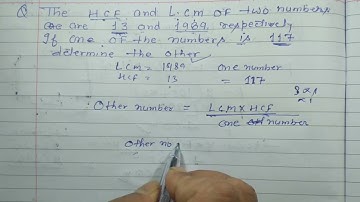 Q The HCF and L.C.M of two numbers
are are 13 and 1989 respectively
If one of the numbers is 117
determine the other
LCM = 1989 one number
HCF = 13 = 117
Other number = LCM X HCF
one number
Other no